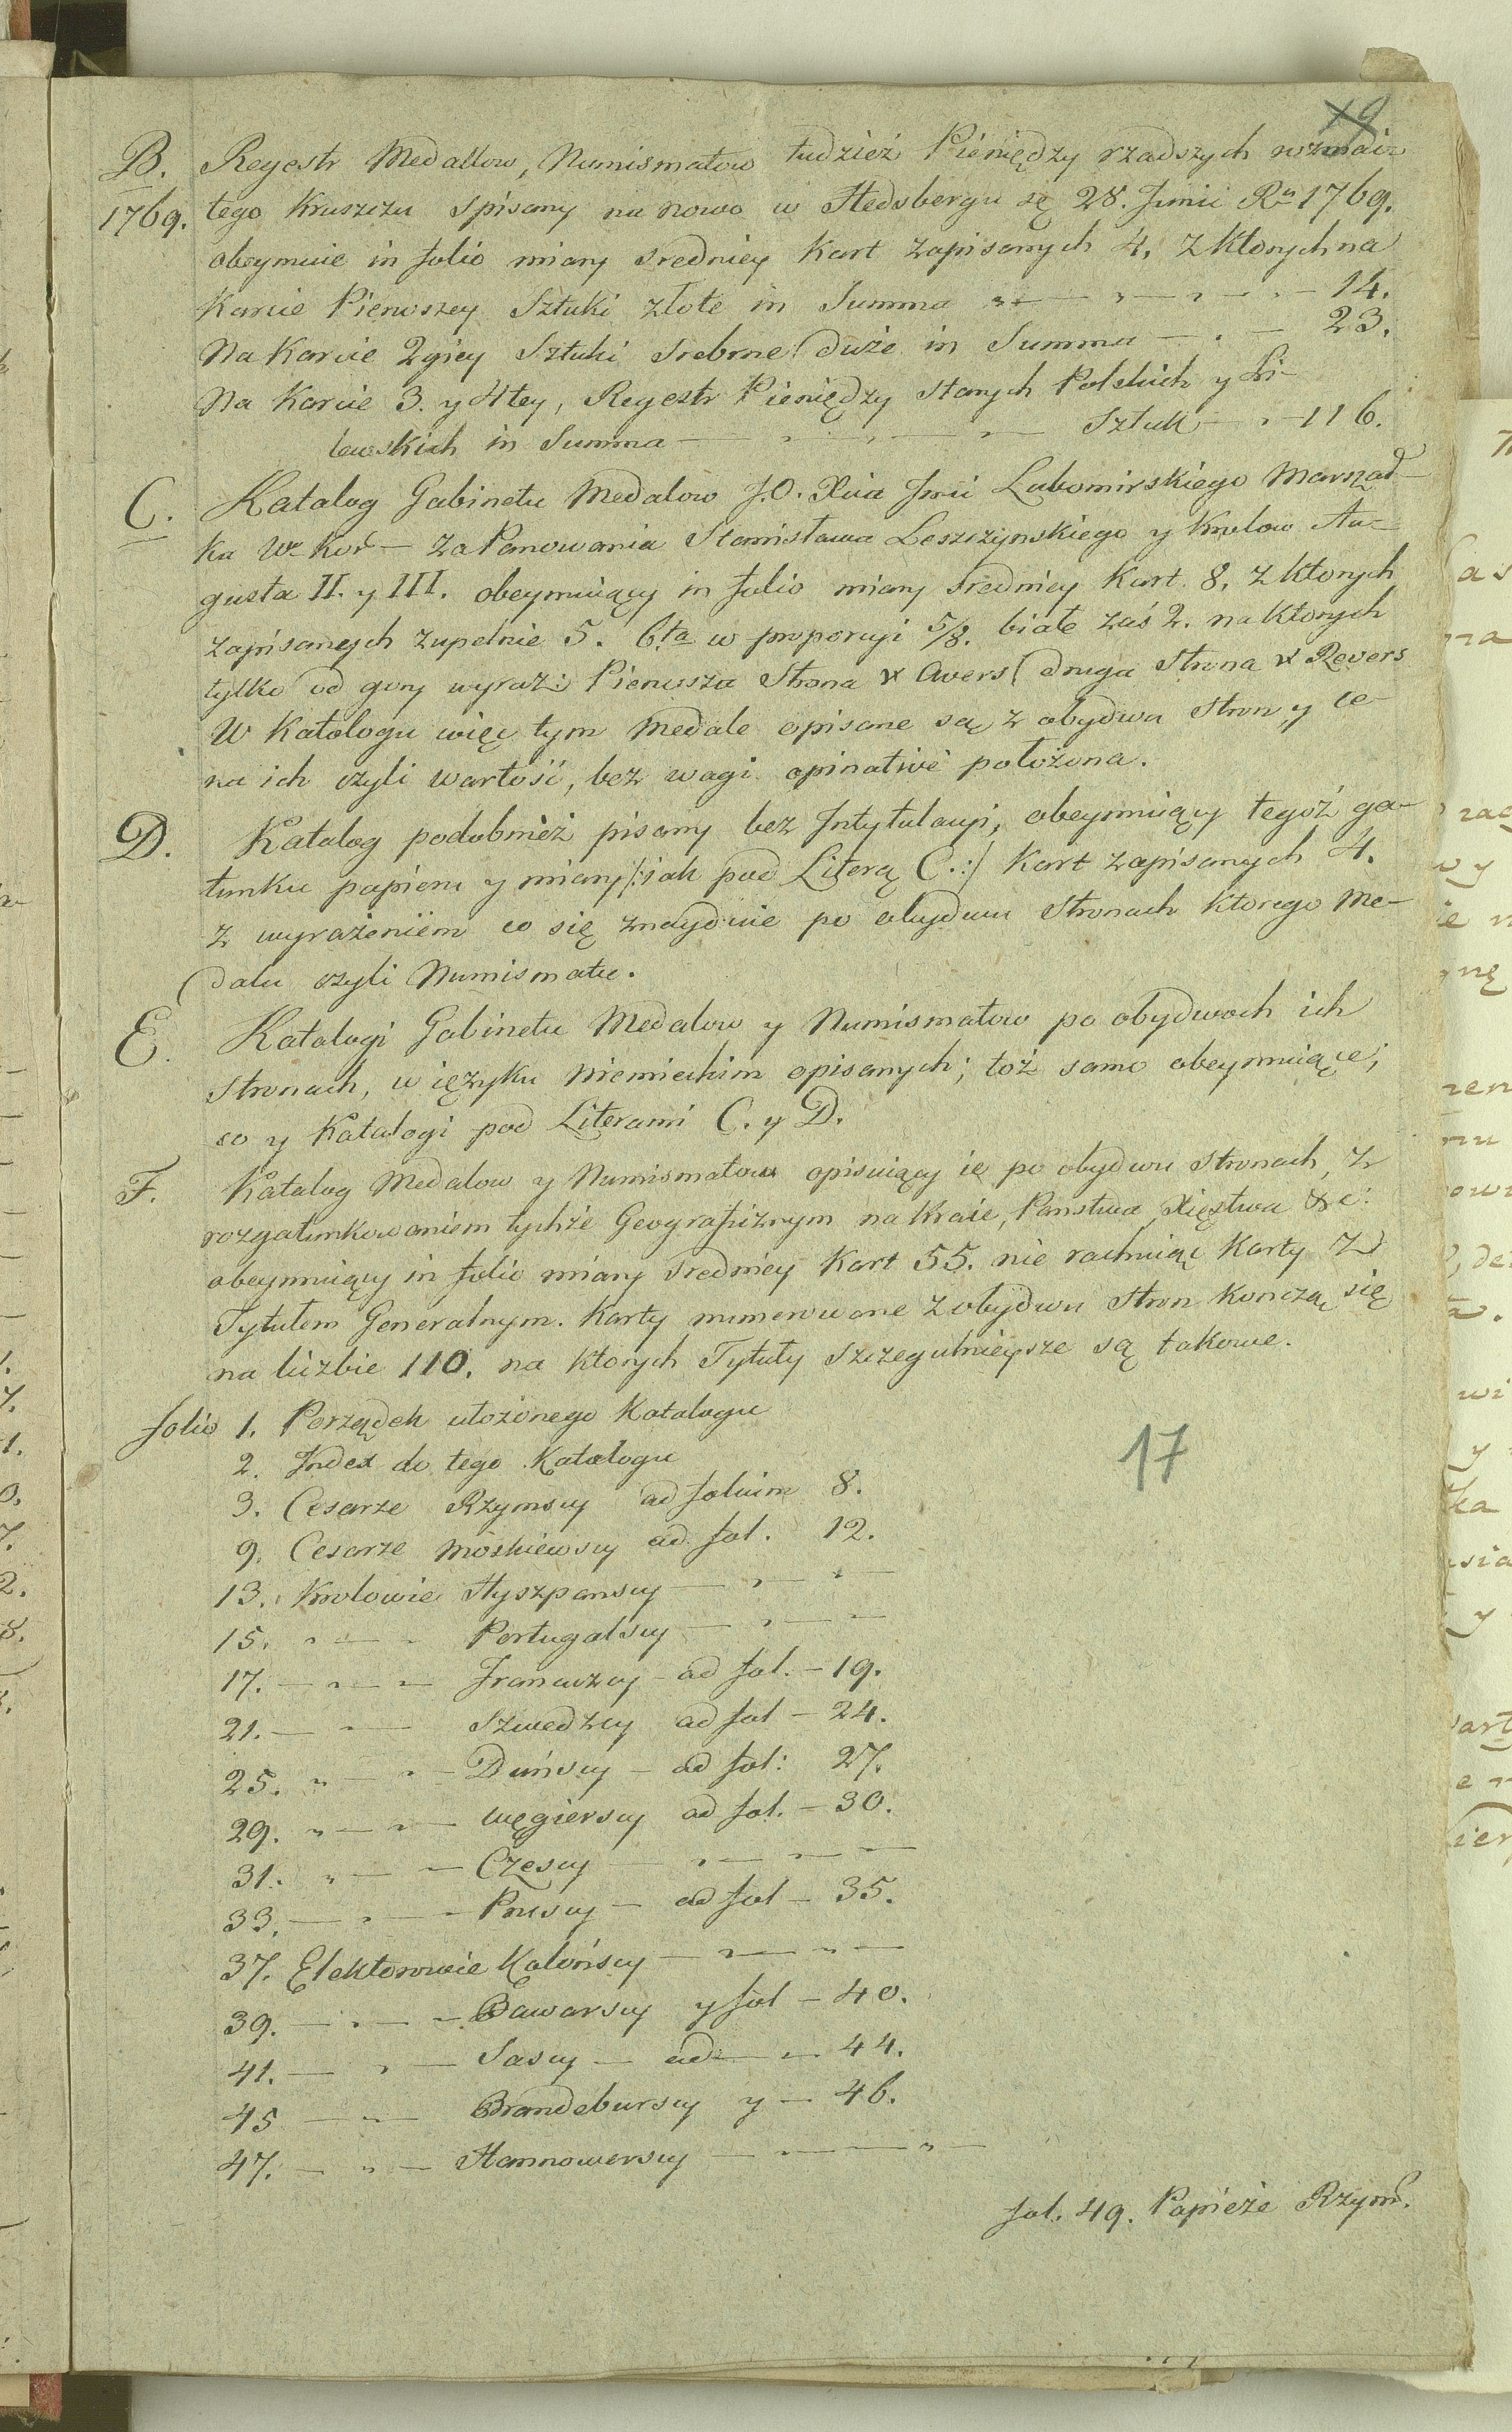 19
B. Regestr Medallow, Numismatow tudzież Pieniędzy rzadszych rozmai-
1769. tego kruszczu spisany na nowo w Hedsbergu 28. Junii Ru 1769.
obeymuie in folio miary sredniey Kart zapisanych 4. z ktorych na
Karcie Pierwszey Sztuki złote in Summa — 14.
Na Karcie 2giey Sztuki srebrne duże in Summa — 23.
Na Karcie 3. y 4tey, Regestr Pieniędzy starych Polskich y Li-
tewskich in Summa — Sztuk — 116.
C. Katalog Gabinetu Medalow J.O. Xcia Jmci Lubomirskiego Marszał-
ka W. Kor — za Panowania Stanisława Leszczynskiego y Krolow Au-
gusta II. y III. obeymuiący in folio miary sredniey Kart 8. z ktorych
zapisanych zupełnie 5. 6.ta w proporcyi 5/8. białe zaś 2. na ktorych
tylko od gory wyraz: Pierwsza Strona Avers druga Strona Revers
W Katalogu więc tym Medale opisane są z obydwu stron y ce-
na ich czyli wartość, bez wagi opinativè położona.
D. Katalog podobnież pisany bez Intytulacyi, obeymuiący tegoż ga-
tunku papieru y miary /:iak pod Literą C.:/ Kart zapisanych 4.
z wyrażeniem co się znayduie po obydwu stronach ktorego Me-
dalu czyli Numismatu.
E. Katalogi Gabinetu Medalow y Numismatow po obydwoch ich
stronach, w ięzyku niemieckim opisanych; toż samo obeymuiące;
co y Katalogi pod Literami C. y D.
F. Katalog Medalow y Numismatow opisuiący ie po obydwu stronach, z
rozgatunkowaniem tychże Geograficznym na Kraie, Panstwa, Xięstwa &c:
obeymuiący in folio miary sredniey Kart 55. nie rachuiąc Karty z
Tytułem Generalnym. Karty numerowane z obydwu stron kończą się
na liczbie 110. na ktorych Tytuły szczegulnieysze są takowe.
folio 1. Porządek ułożonego Katalogu
17
2. Index do tego Katalogu
3. Cesarze Rzymscy ad folium 8.
9. Cesarze Moskiewscy ad fol. 12.
13. Krolowie Hyszpanscy —
15. — Portugalscy —
17. — Francuzcy — ad fol. — 19.
21. — Szwedzcy ad fol — 24.
25. — Duńscy — ad fol: 27.
29. — Węgierscy ad fol. — 30.
31. — Czescy —
33. — Pruscy — ad fol — 35.
37. Elektorowie Kolońscy —
39. — Bawarscy y fol — 40.
41. — Sascy — ad — 44.
45 — Brandeburscy y — 46.
47. — Hannowerscy —
fol. 49. Papieże Rzyms.